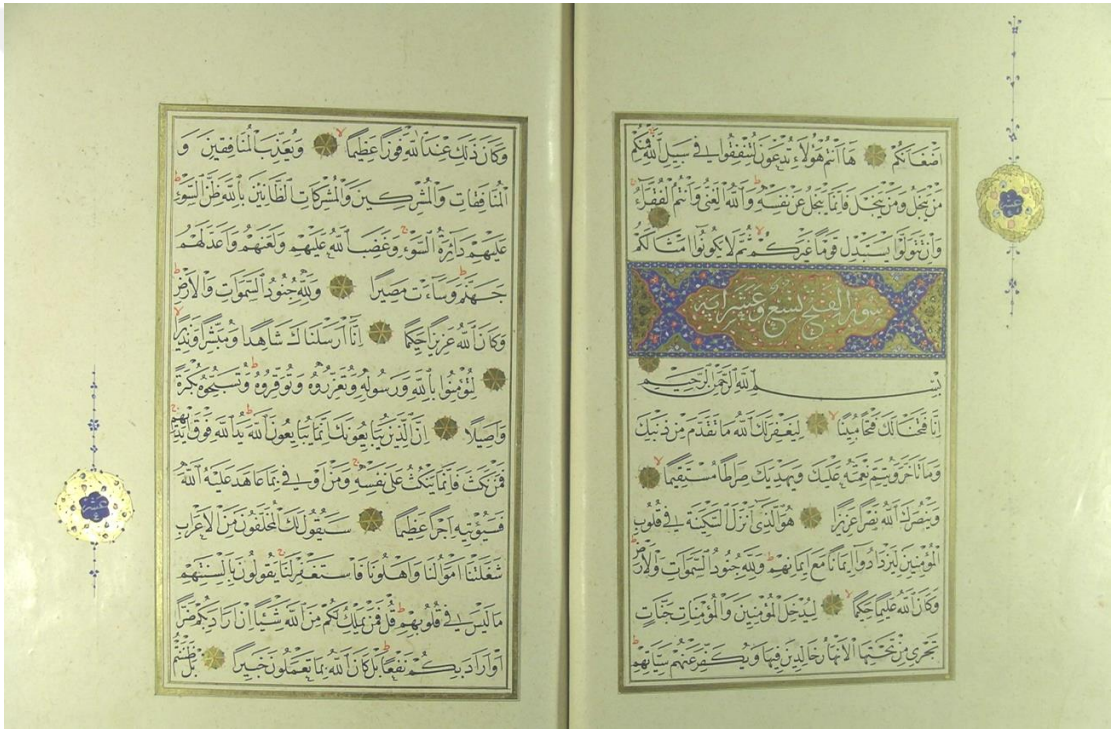 اَضْغَانَكُمْ هَٓا اَنْتُمْ هٰٓؤُ۬لَٓاءِ تُدْعَوْنَ لِتُنْفِقُوا فٖى سَبٖيلِ اللّٰهِ فَمِنْكُمْ
مَنْ يَبْخَلُ وَمَنْ يَبْخَلْ فَاِنَّمَا يَبْخَلُ عَنْ نَفْسِهٖ وَاللّٰهُ الْغَنِىُّ وَاَنْتُمُ الْفُقَرَٓاءُ
وَاِنْ تَتَوَلَّوْا يَسْتَبْدِلْ قَوْمًا غَيْرَكُمْ ثُمَّ لَا يَكُونُٓوا اَمْثَالَكُمْ
سورة الفتح تسع وعشر اية
بِسْمِ اللّٰهِ الرَّحْمٰنِ الرَّحٖيمِ
اِنَّا فَتَحْنَا لَكَ فَتْحًا مُبٖينًا لِيَغْفِرَ لَكَ اللّٰهُ مَا تَقَدَّمَ مِنْ ذَنْبِكَ
وَمَا تَاَخَّرَ وَيُتِمَّ نِعْمَتَهُ عَلَيْكَ وَيَهْدِيَكَ صِرَاطًا مُسْتَقٖيمًا
وَيَنْصُرَكَ اللّٰهُ نَصْرًا عَزٖيزًا هُوَ الَّذٖٓى اَنْزَلَ السَّكٖينَةَ فٖى قُلُوبِ
الْمُؤْمِنٖينَ لِيَزْدَادُٓوا اٖيمَانًا مَعَ اٖيمَانِهِمْ وَلِلّٰهِ جُنُودُ السَّمٰوَاتِ وَالْاَرْضِ
وَكَانَ اللّٰهُ عَلٖيمًا حَكٖيمًا لِيُدْخِلَ الْمُؤْمِنٖينَ وَالْمُؤْمِنَاتِ جَنَّاتٍ
تَجْرٖى مِنْ تَحْتِهَا الْاَنْهَارُ خَالِدٖينَ فٖيهَا وَيُكَفِّرَ عَنْهُمْ سَيِّـَٔاتِهِمْ
عشر
وَكَانَ ذٰلِكَ عِنْدَ اللّٰهِ فَوْزًا عَظٖيمًا وَيُعَذِّبَ الْمُنَافِقٖينَ وَ
الْمُنَافِقَاتِ وَالْمُشْرِكٖينَ وَالْمُشْرِكَاتِ الظَّٓانّٖينَ بِاللّٰهِ ظَنَّ السَّوْءِ
عَلَيْهِمْ دَٓائِرَةُ السَّوْءِ وَغَضِبَ اللّٰهُ عَلَيْهِمْ وَلَعَنَهُمْ وَاَعَدَّ لَهُمْ
جَهَنَّمَ وَسَٓاءَتْ مَصٖيرًا وَلِلّٰهِ جُنُودُ السَّمٰوَاتِ وَالْاَرْضِ
وَكَانَ اللّٰهُ عَزٖيزًا حَكٖيمًا اِنَّٓا اَرْسَلْنَاكَ شَاهِدًا وَمُبَشِّرًا وَنَذٖيرًا
لِتُؤْمِنُوا بِاللّٰهِ وَرَسُولِهٖ وَتُعَزِّرُوهُ وَتُوَقِّرُوهُ وَتُسَبِّحُوهُ بُكْرَةً
وَاَصٖيلًا اِنَّ الَّذٖينَ يُبَايِعُونَكَ اِنَّمَا يُبَايِعُونَ اللّٰهَ يَدُ اللّٰهِ فَوْقَ اَيْدٖيهِمْ
فَمَنْ نَكَثَ فَاِنَّمَا يَنْكُثُ عَلٰى نَفْسِهٖ وَمَنْ اَوْفٰى بِمَا عَاهَدَ عَلَيْهُ اللّٰهَ
فَسَيُؤْتٖيهِ اَجْرًا عَظٖيمًا سَيَقُولُ لَكَ الْمُخَلَّفُونَ مِنَ الْاَعْرَابِ
شَغَلَتْنَٓا اَمْوَالُنَا وَاَهْلُونَا فَاسْتَغْفِرْ لَنَا يَقُولُونَ بِاَلْسِنَتِهِمْ
مَا لَيْسَ فٖى قُلُوبِهِمْ قُلْ فَمَنْ يَمْلِكُ لَكُمْ مِنَ اللّٰهِ شَيْـًٔا اِنْ اَرَادَ بِكُمْ ضَرًّا
اَوْ اَرَادَ بِكُمْ نَفْعًا بَلْ كَانَ اللّٰهُ بِمَا تَعْمَلُونَ خَبٖيرًا بَلْ ظَنَنْتُمْ
عشر